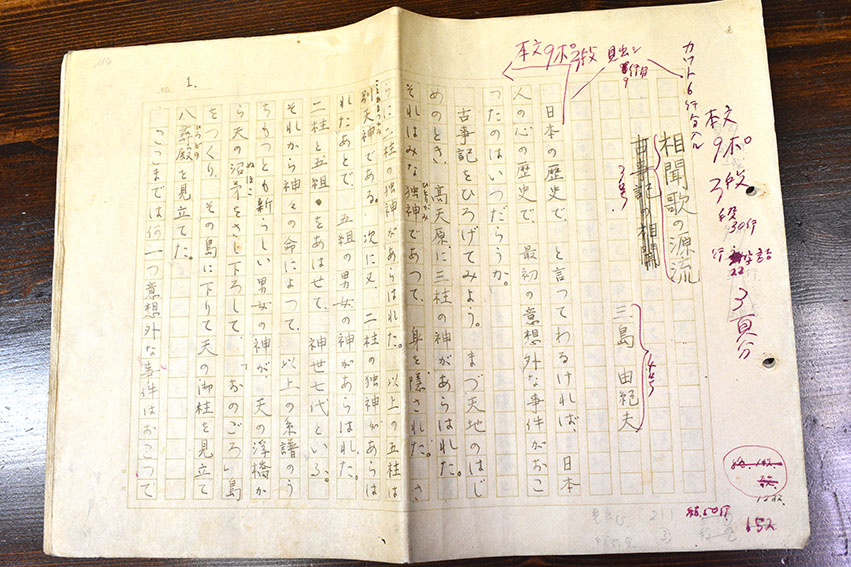 カット6行分入ル
本文
9ポ
3段
3頁分
見出シ
本文9ポ3段
相聞歌の源流
古事記の相聞
3号
三島由紀夫
4号
日本の歴史で、と言つてわるければ、日本
人の心の歴史で、最初の意想外な事件がおこ
つたのはいつだらうか。
古事記をひろげてみよう。まづ天地のはじ
めのとき、高天原に三柱の神があらはれた。
それはみな独神であつて、身を隠された。さ
ひとりがみ
らに二柱の独神があらはれた。以上の五柱は
別天神である。次に又、二柱の独神があらは
ことあまつかみ
れたあとで、五組の男女の神があらはれた。
二柱と五組をあはせて、神世七代といふ。
それから神々の命によつて、以上の系譜のう
ちもつとも新らしい男女の神が、天の浮橋か
ら天の沼矛をさし下ろして、「おのごろ」島
ぬほこ
をつくり、その島に下りて天の御柱を見立て
八尋殿を見立てた。
ひろどの
ここまでは何一つ意想外な事件はおこつて
1.
15枚